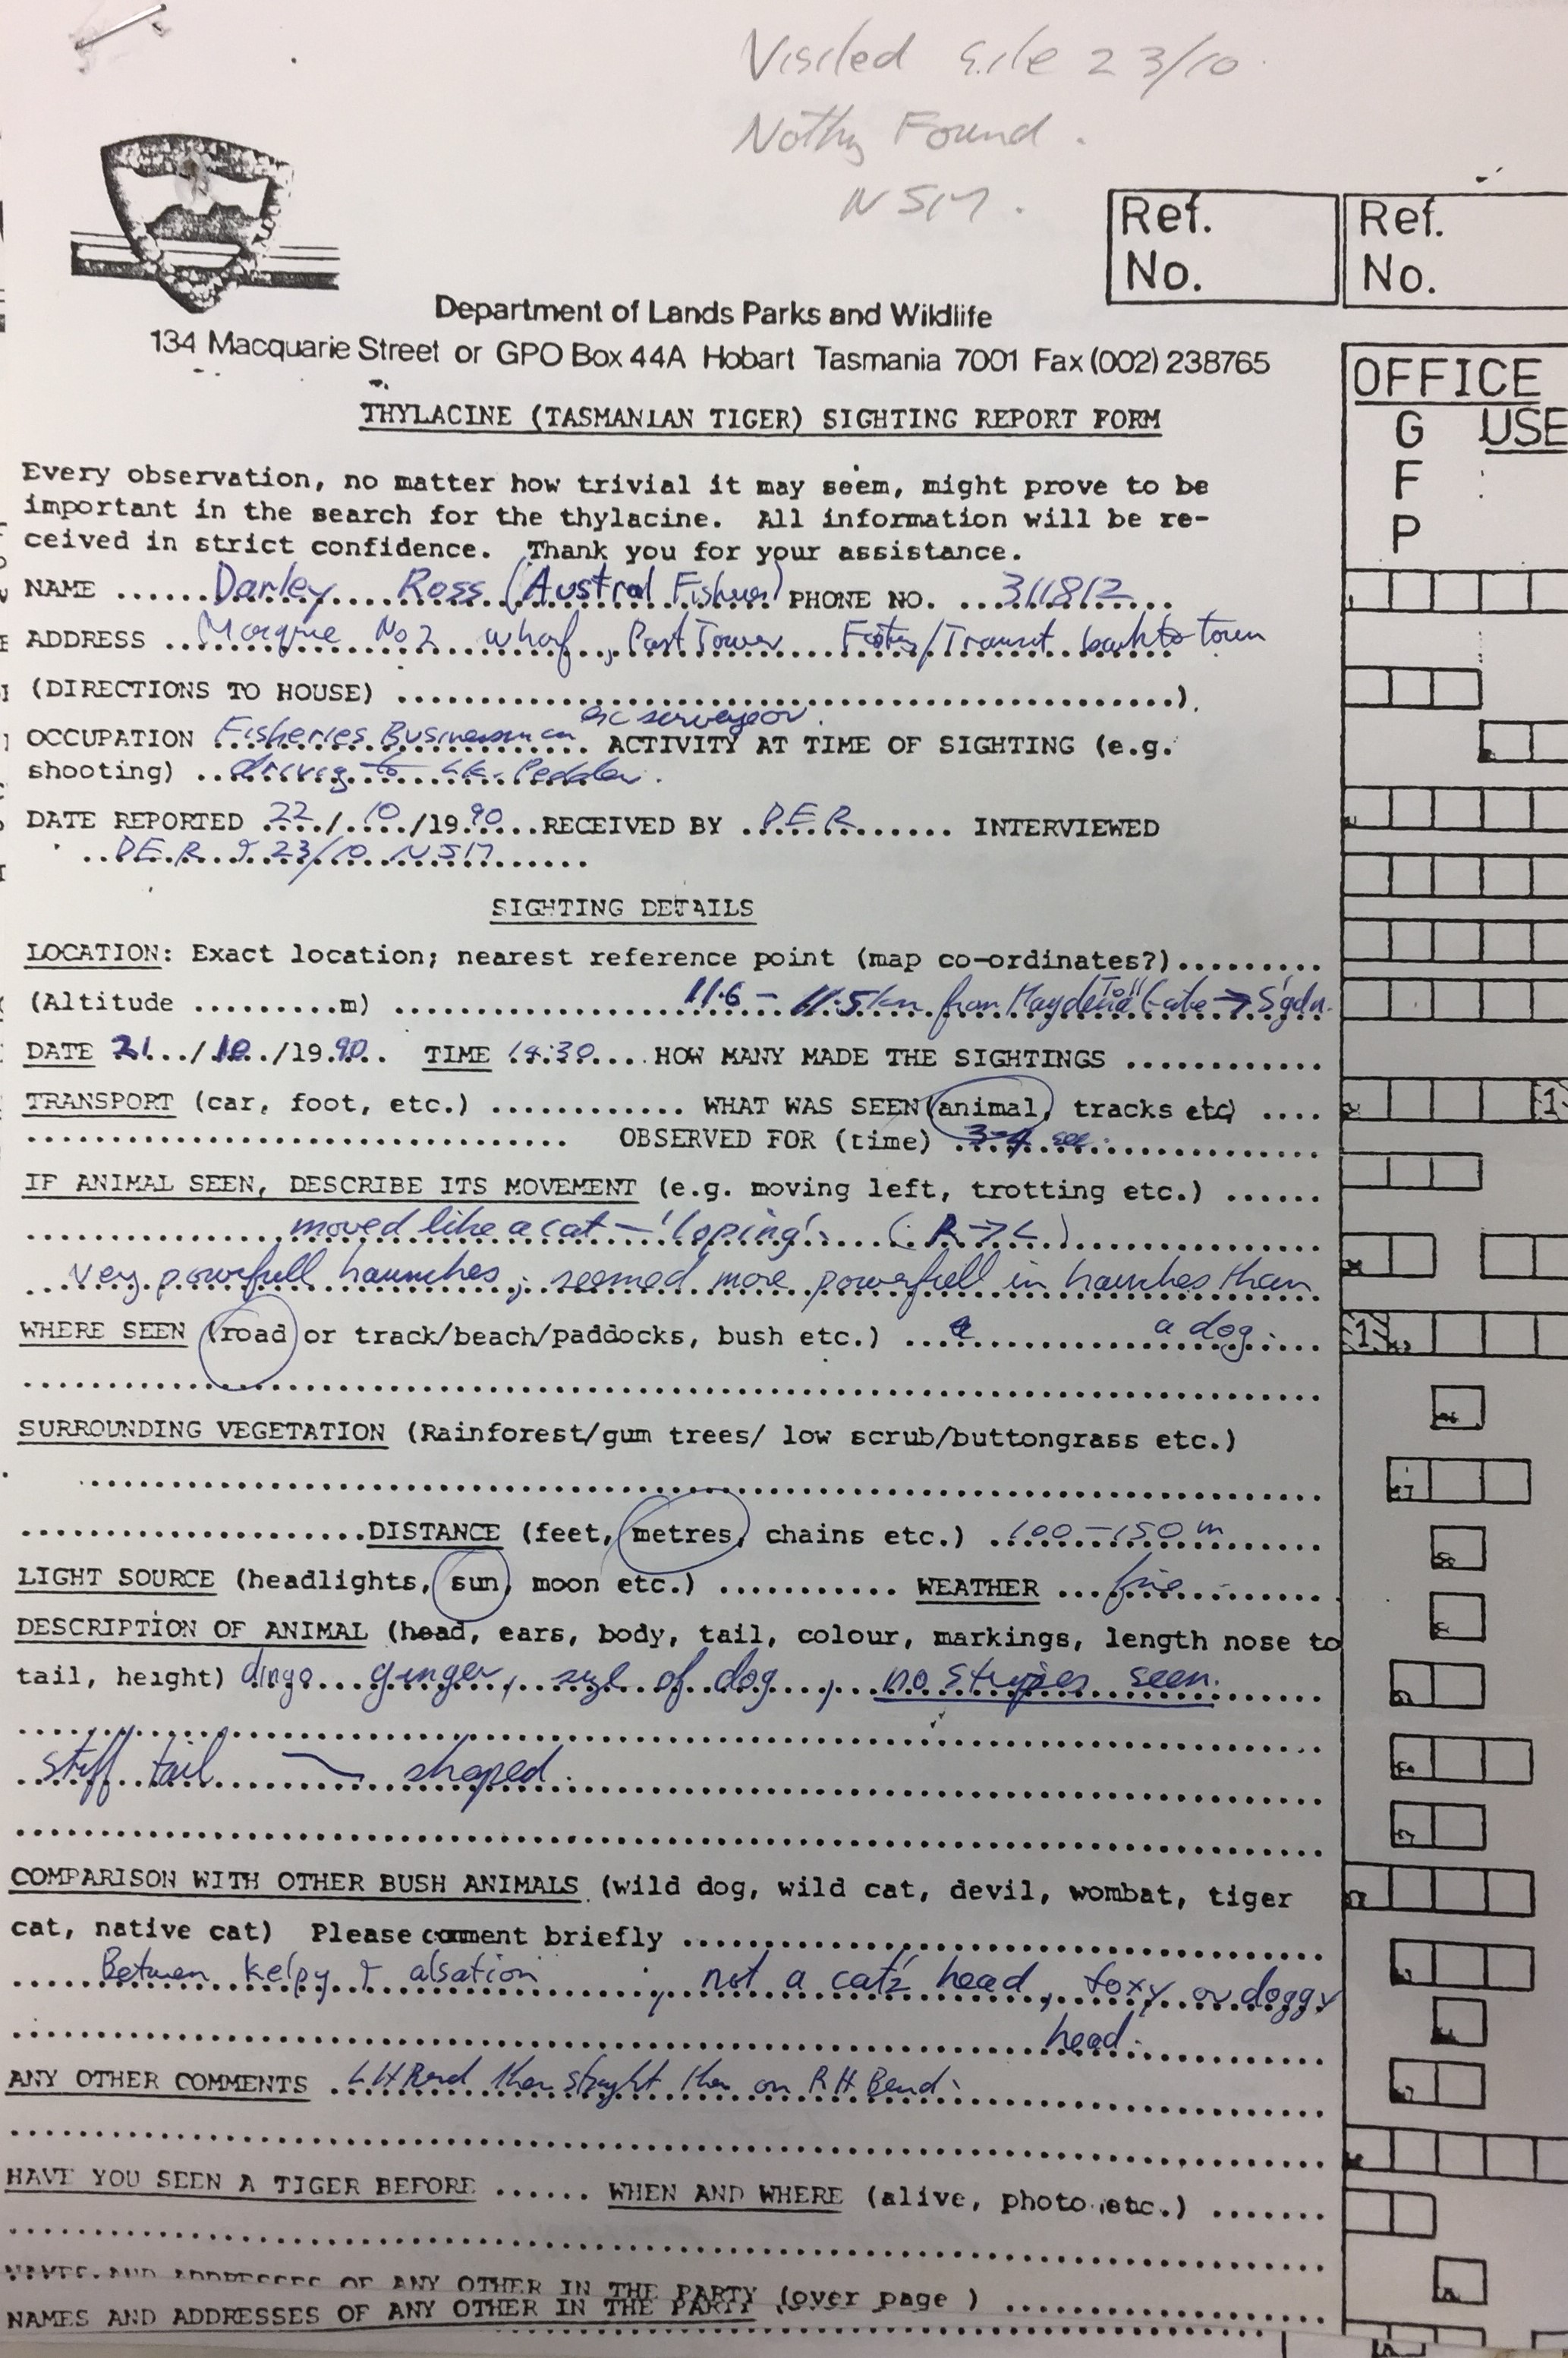 Visited site 23/10
Nothg Found.
NSM.
Ref. No.
Ref. No.
Department of Lands Parks and Wildlife
134 Macquarie Street or GPO Box 44A Hobart Tasmania 7001 Fax (002) 238765
THYLACINE (TASMANIAN TIGER) SIGHTING REPORT FORM
OFFICE
G USE
F
P
Every observation, no matter how trivial it may seem, might prove to be
important in the search for the thylacine. All information will be re-
ceived in strict confidence. Thank you for your assistance.
NAME ...... Ross (Austral PHONE NO. ...311812...
ADDRESS ... No 2 wharf, Port Tower /Transit back to town
(DIRECTIONS TO HOUSE) ..............................).
OCCUPATION Fisheries Businessman surveyor. ACTIVITY AT TIME OF SIGHTING (e.g.
shooting) ..driving to Lk. Pedder.
DATE REPORTED 22/10/1990...RECEIVED BY .DER....... INTERVIEWED
..DER & 23/10 NSM......
SIGHTING DETAILS
LOCATION: Exact location; nearest reference point (map co-ordinates?).........
(Altitude .........m) ............ 11.6 - 11.5km from Maydena Toll Gate → S'gdn.
DATE 21../10../1990.. TIME 14:30.... HOW MANY MADE THE SIGHTINGS ............
TRANSPORT (car, foot, etc.) ............ WHAT WAS SEEN (animal, tracks etc) ....
............................. OBSERVED FOR (time) .3-4 sec.............
IF ANIMAL SEEN, DESCRIBE ITS MOVEMENT (e.g. moving left, trotting etc.) ......
................moved like a cat - 'loping'. (R→L)
very powerfull haunches; seemed more powerfull in haunches than
WHERE SEEN (road or track/beach/paddocks, bush etc.) ... a dog.
SURROUNDING VEGETATION (Rainforest/gum trees/ low scrub/buttongrass etc.)
.....................DISTANCE (feet, metres, chains etc.) .100-150m
LIGHT SOURCE (headlights, sun, moon etc.) ........... WEATHER ...fine
DESCRIPTION OF ANIMAL (head, ears, body, tail, colour, markings, length nose to
tail, height) dingo ginger, size of dog, no stripes seen.
stiff tail shaped.
COMPARISON WITH OTHER BUSH ANIMALS (wild dog, wild cat, devil, wombat, tiger
cat, native cat) Please comment briefly ..............................
Between kelpy & alsation, not a cat's head, foxy or doggy
head.
ANY OTHER COMMENTS .LH Bend then straght then on RH Bend.
HAVE YOU SEEN A TIGER BEFORE ...... WHEN AND WHERE (alive, photo etc.) .......
NAMES AND ADDRESSES OF ANY OTHER IN THE PARTY (over page )
NAMES AND ADDRESSES OF ANY OTHER IN THE PARTY